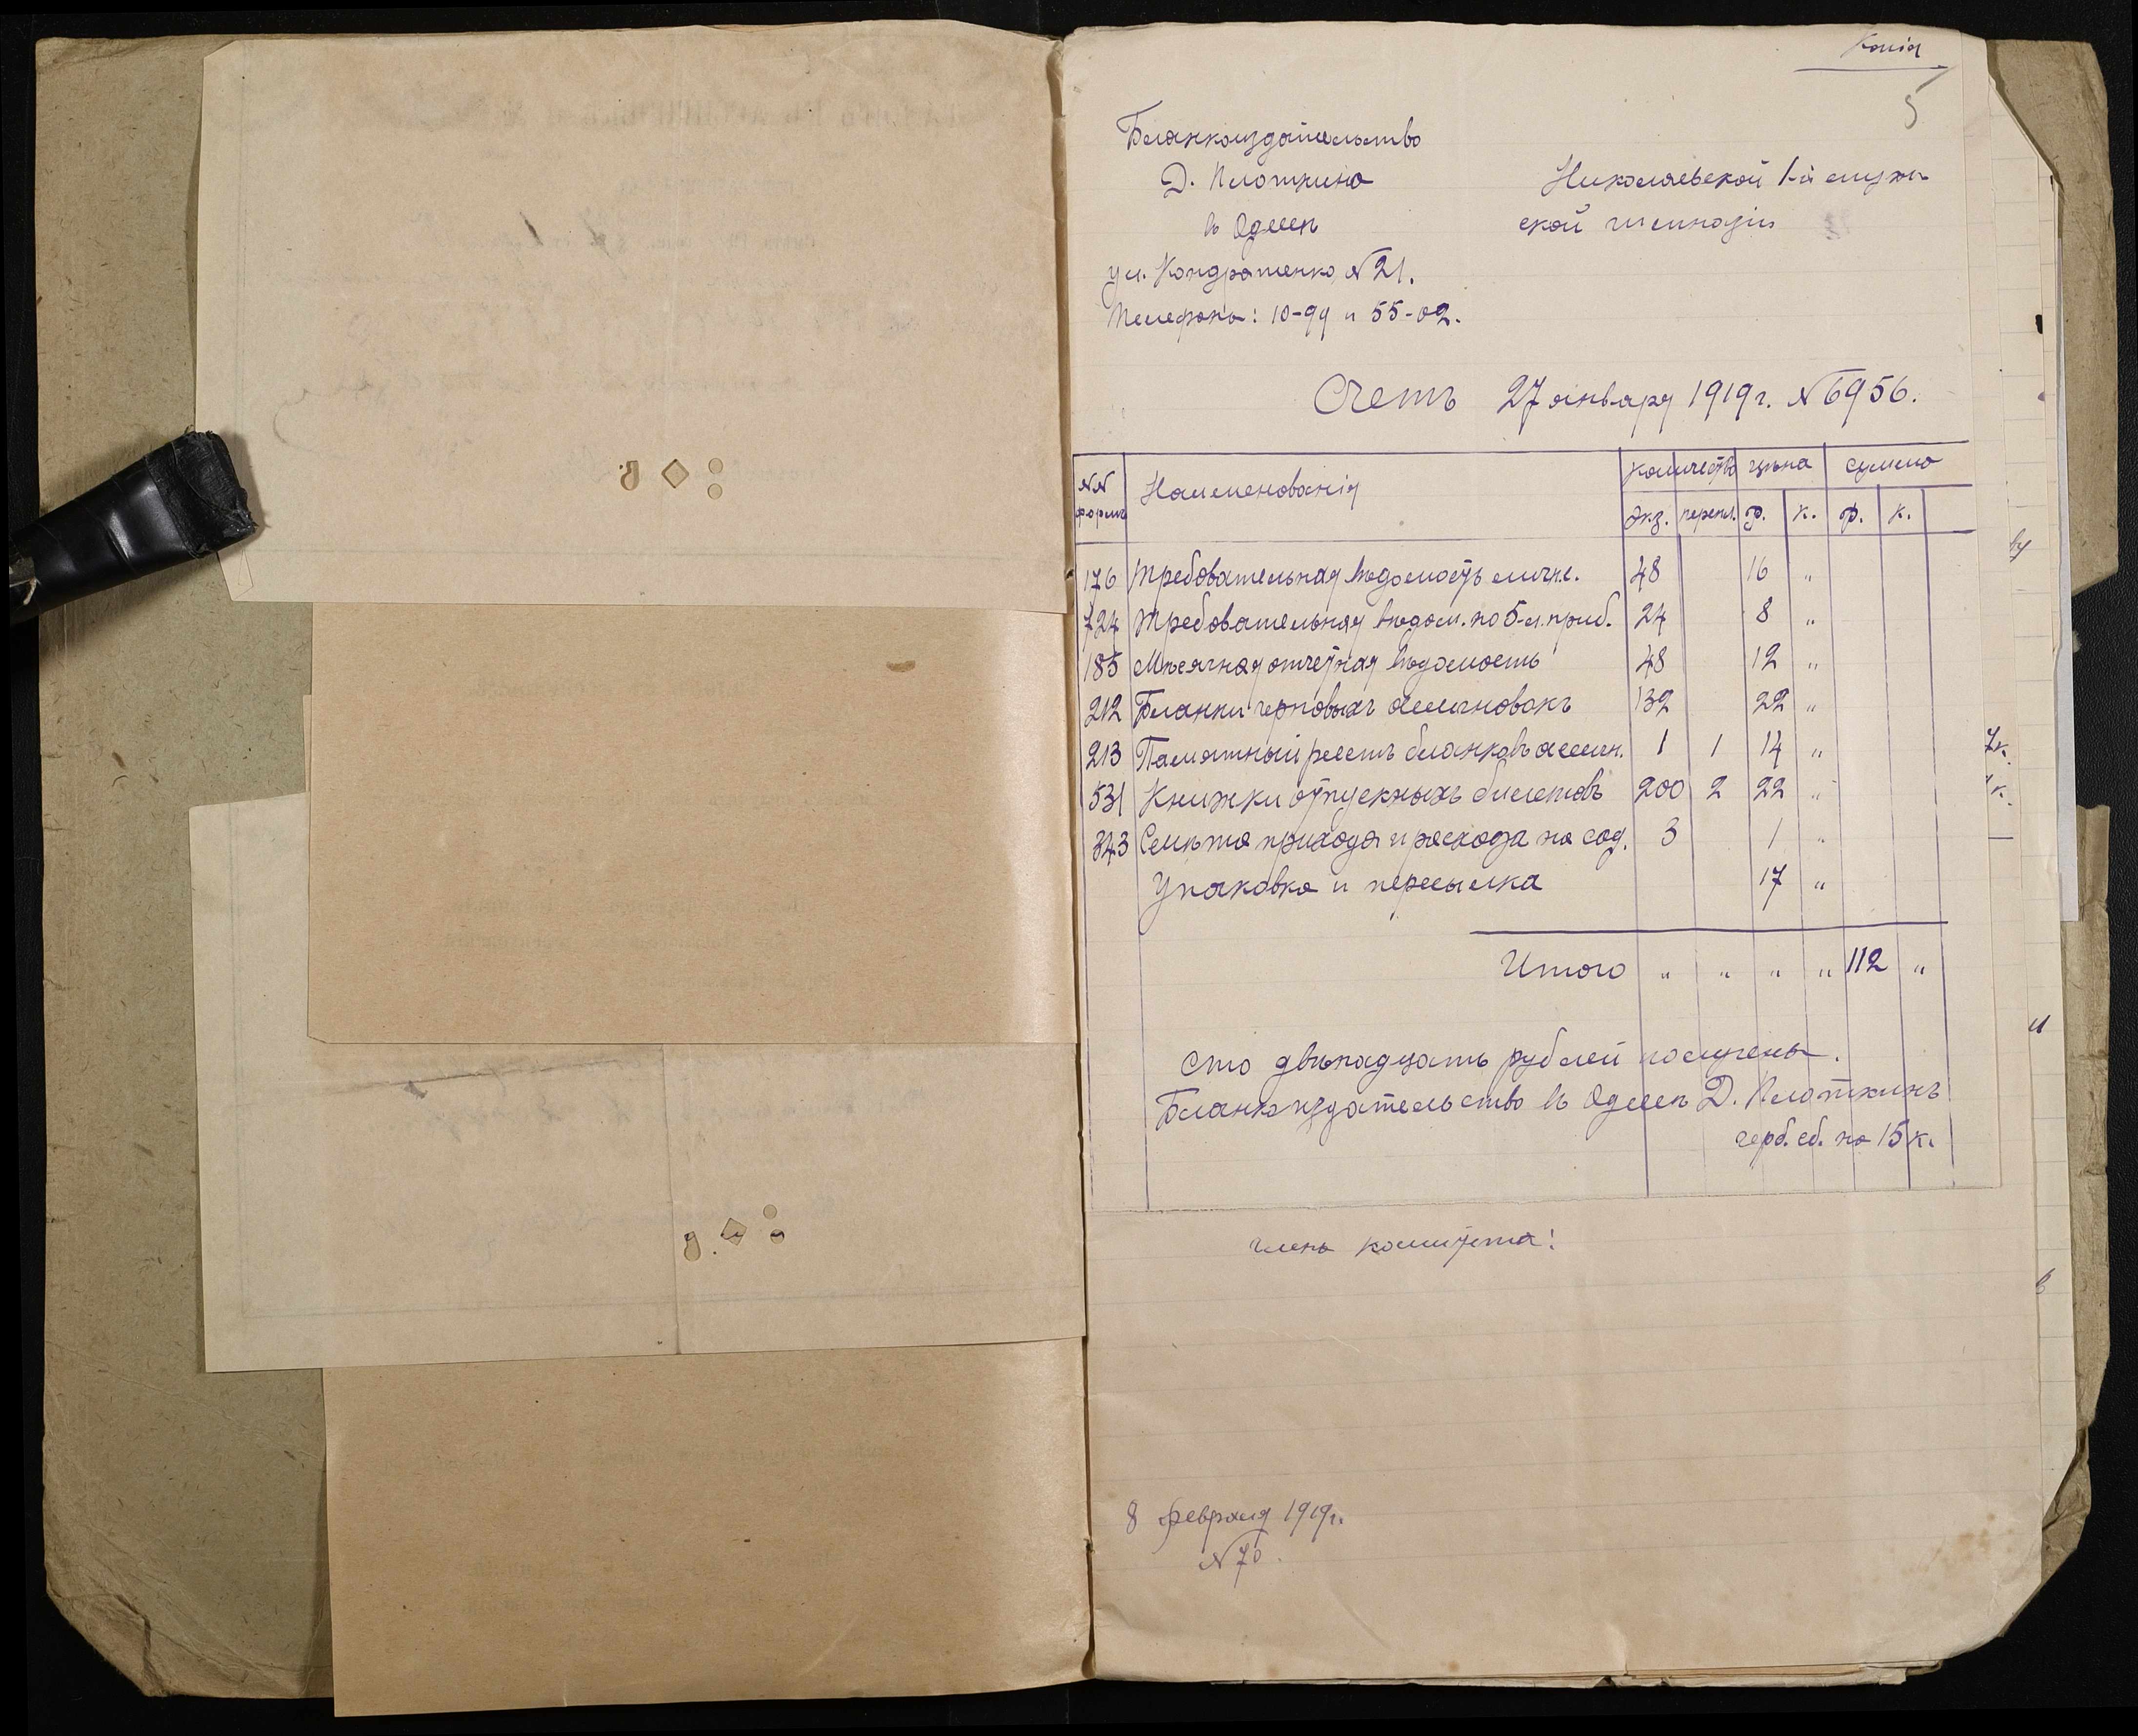 Копія
5
Бланкоиздательство
Д. Плоткина
въ Одессѣ
ул. Кондратенко, №21.
Телефоны: 10-99 и 55-02.
Николаевской 1-й мужс-
ской гимназіи
Счетъ 27 января 1919 г. №6956.
№№ формъ Наименованія количество цѣна сумма
экз. перепл. р. к. р. к.
176 Требовательная вѣдомость личн. 48 16 "
724 Требовательная вѣдом. по 5-л. приб. 24 8 "
185 Мѣсячная отчетная вѣдомость 48 12 "
212 Бланки черновыхъ ассигновокъ 132 22 "
213 Памятный реестръ бланковъ ассигн. 1 1 14 "
531 Книжки отпускныхъ билетовъ 200 2 22 "
343 Смѣта прихода и расхода на сод. 3 1 "
Упаковка и пересылка 17 "
Итого " " " " 112 "
Сто двѣнадцать рублей получены.
Бланкоиздательство въ Одессѣ Д. Плоткинъ
герб. сб. на 15 к.
Членъ комитета:
8 февраля 1919 г.
№ 70.